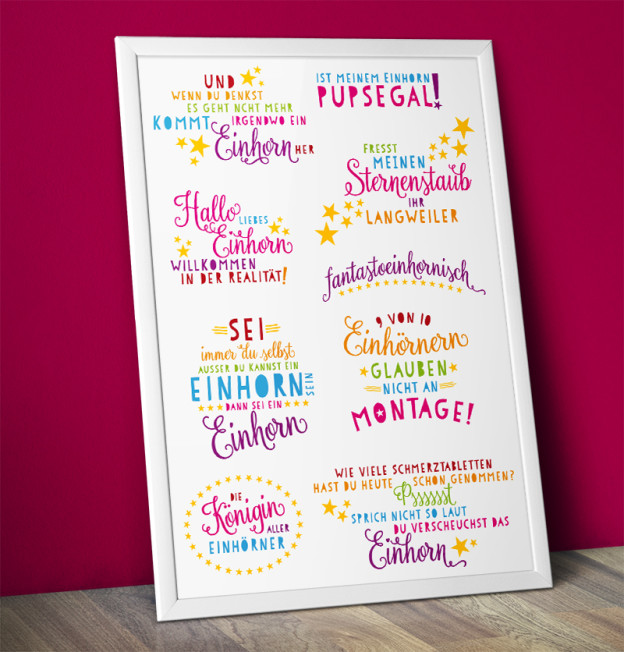 UND
WENN DU DENKST
ES GEHT NCHT MEHR
KOMMT IRGENDWO EIN
Einhorn HER
IST MEINEM EINHORN
PUPSEGAL!
FRESST
MEINEN
Sternenstaub
IHR
LANGWEILER
Hallo
LIEBES
Einhorn
WILLKOMMEN
IN DER REALITÄT!
fantastoeinhornisch
SEI
immer du selbst
AUSSER DU KANNST EIN
EINHORN SEIN
DANN SEI EIN
Einhorn
9 VON 10
Einhörnern
GLAUBEN
NICHT AN
MONTAGE!
DIE
Königin
ALLER
EINHÖRNER
WIE VIELE SCHMERZTABLETTEN
HAST DU HEUTE SCHON GENOMMEN?
Psssssst
SPRICH NICHT SO LAUT
DU VERSCHEUCHST DAS
Einhorn